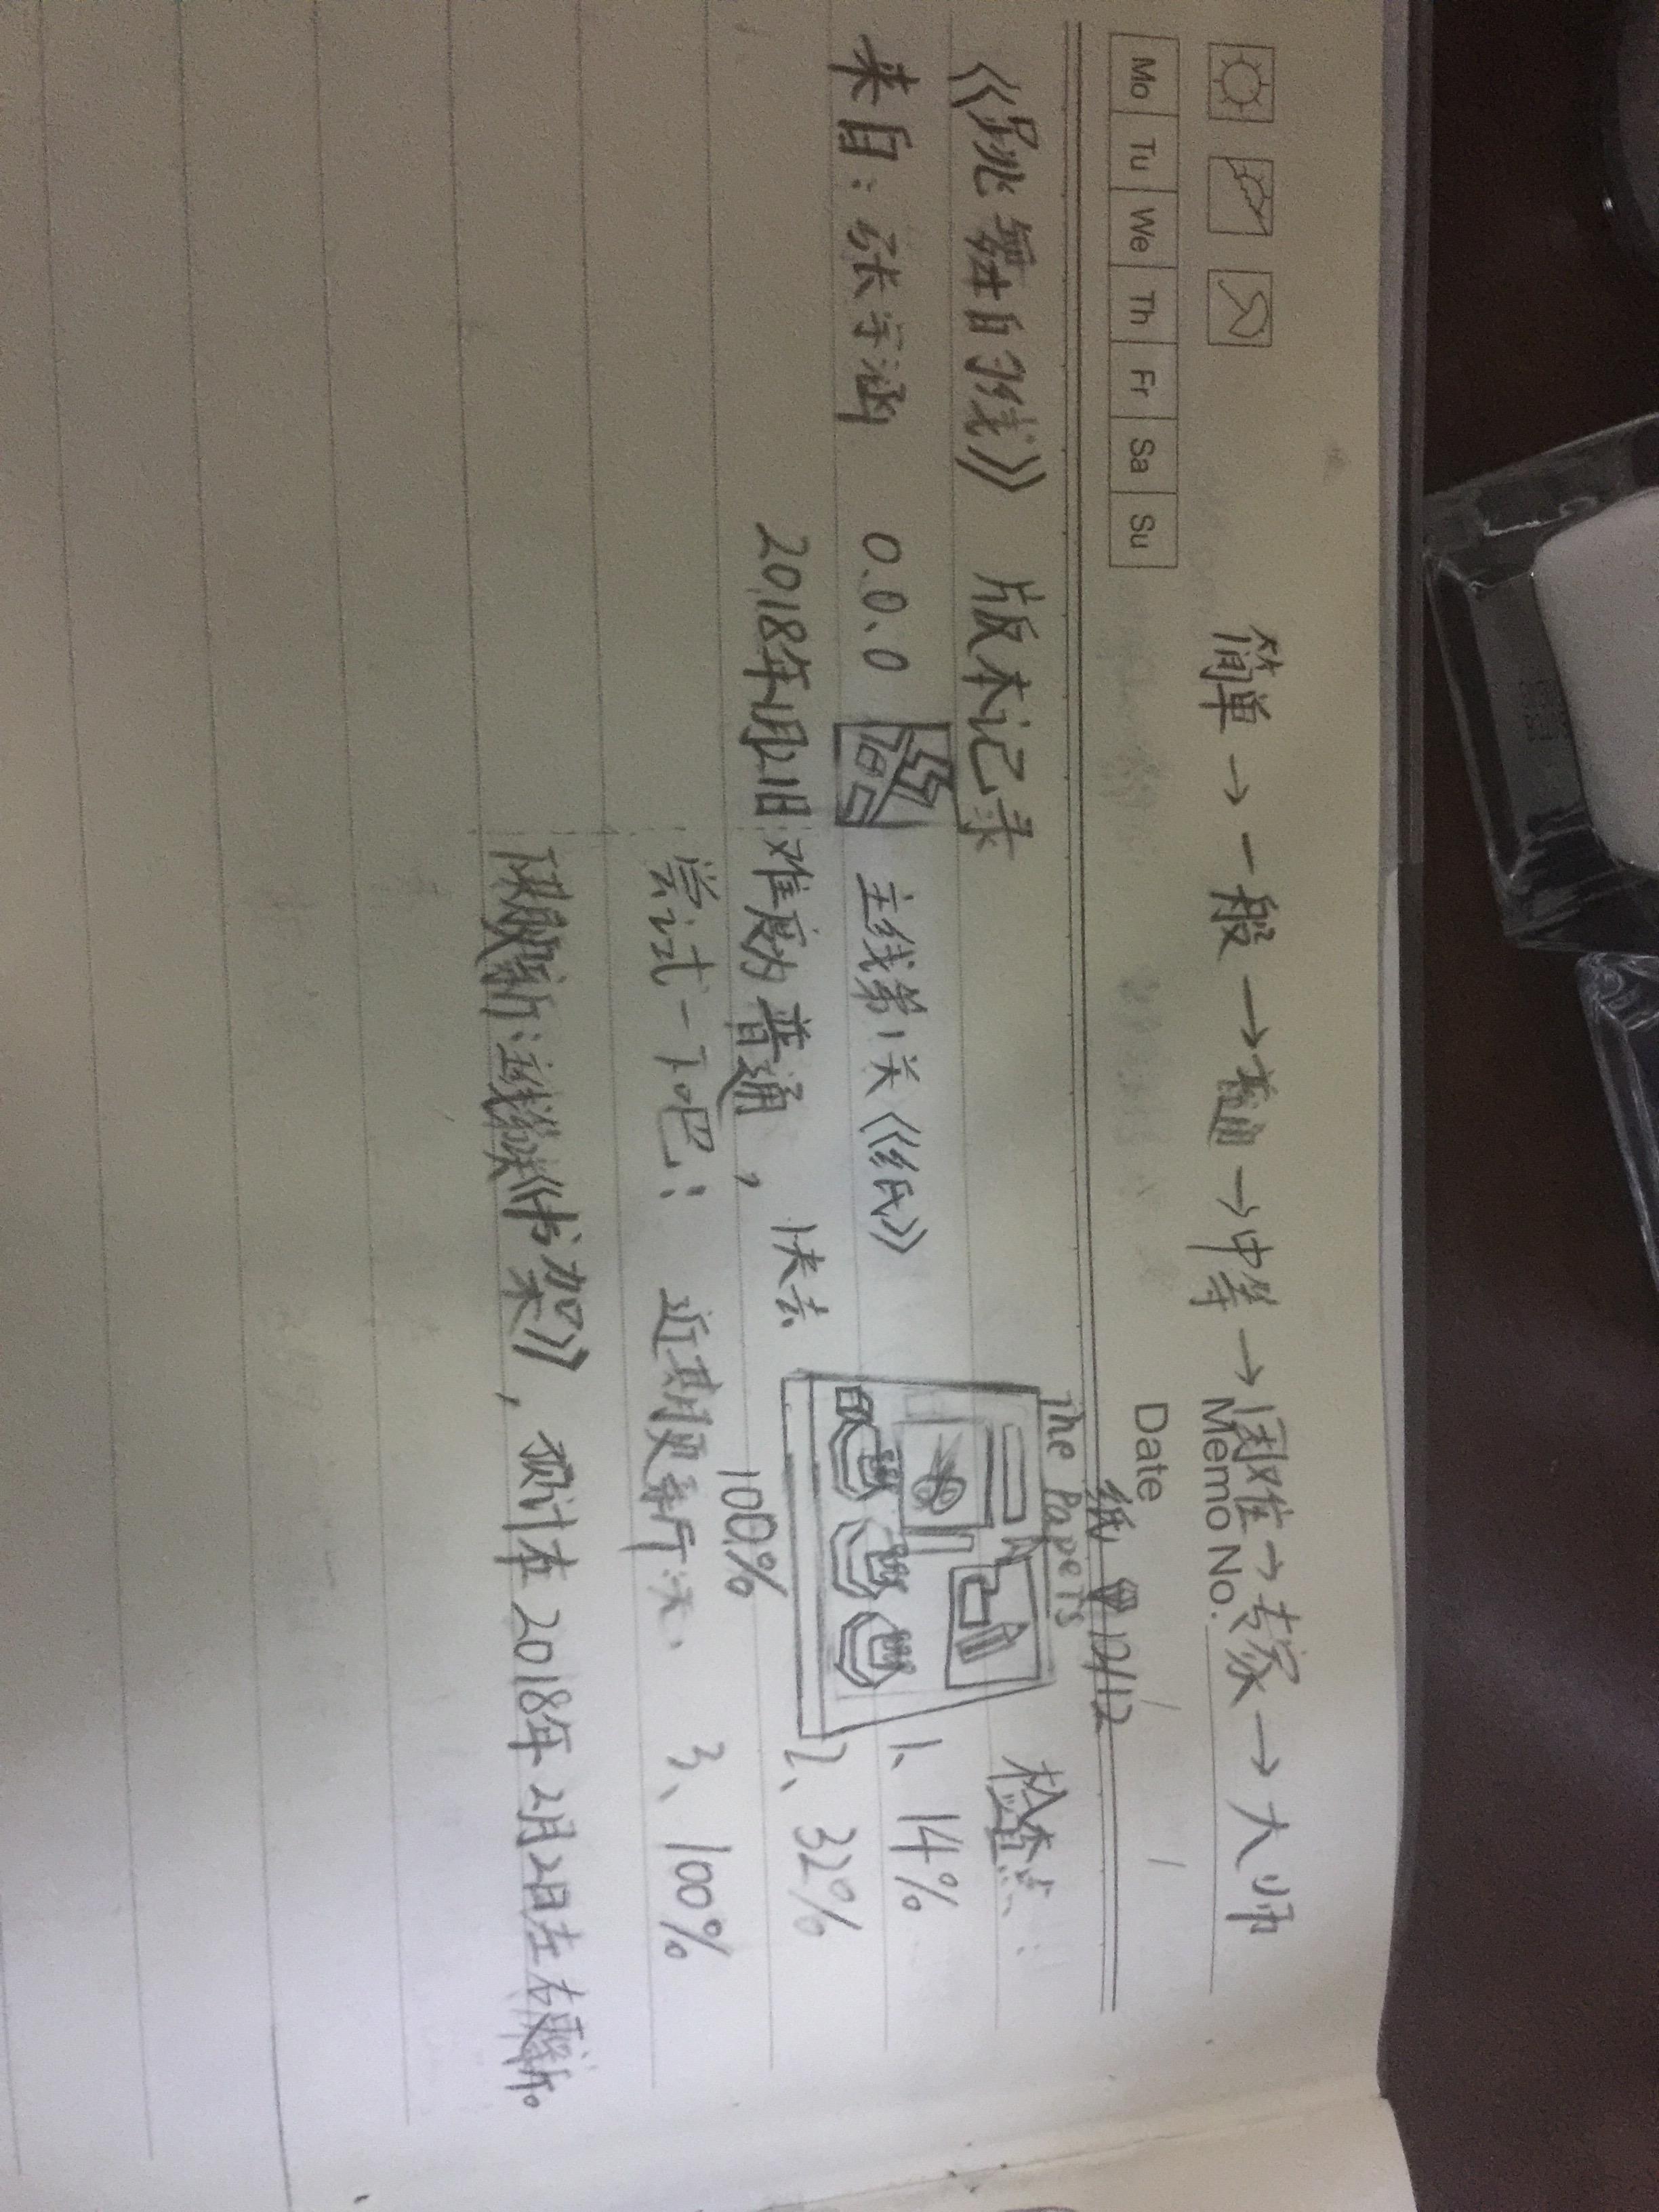 简单→一般→普通→中等→困难→专家→大师
Memo No.
Mo Tu We Th Fr Sa Su
Date / /
纸 12/12
The Papers
《跳舞的线》 版本记录
检查点：
来自：张宇涵 0.0.0 主线第1关《纸》
1、14%
2018年1月21日：难度为普通，快去
2、32%
尝试一下吧！ 近期更新厅 100%
3、100%
：主线 《书架》，预计在2018年2月2日左右更新。